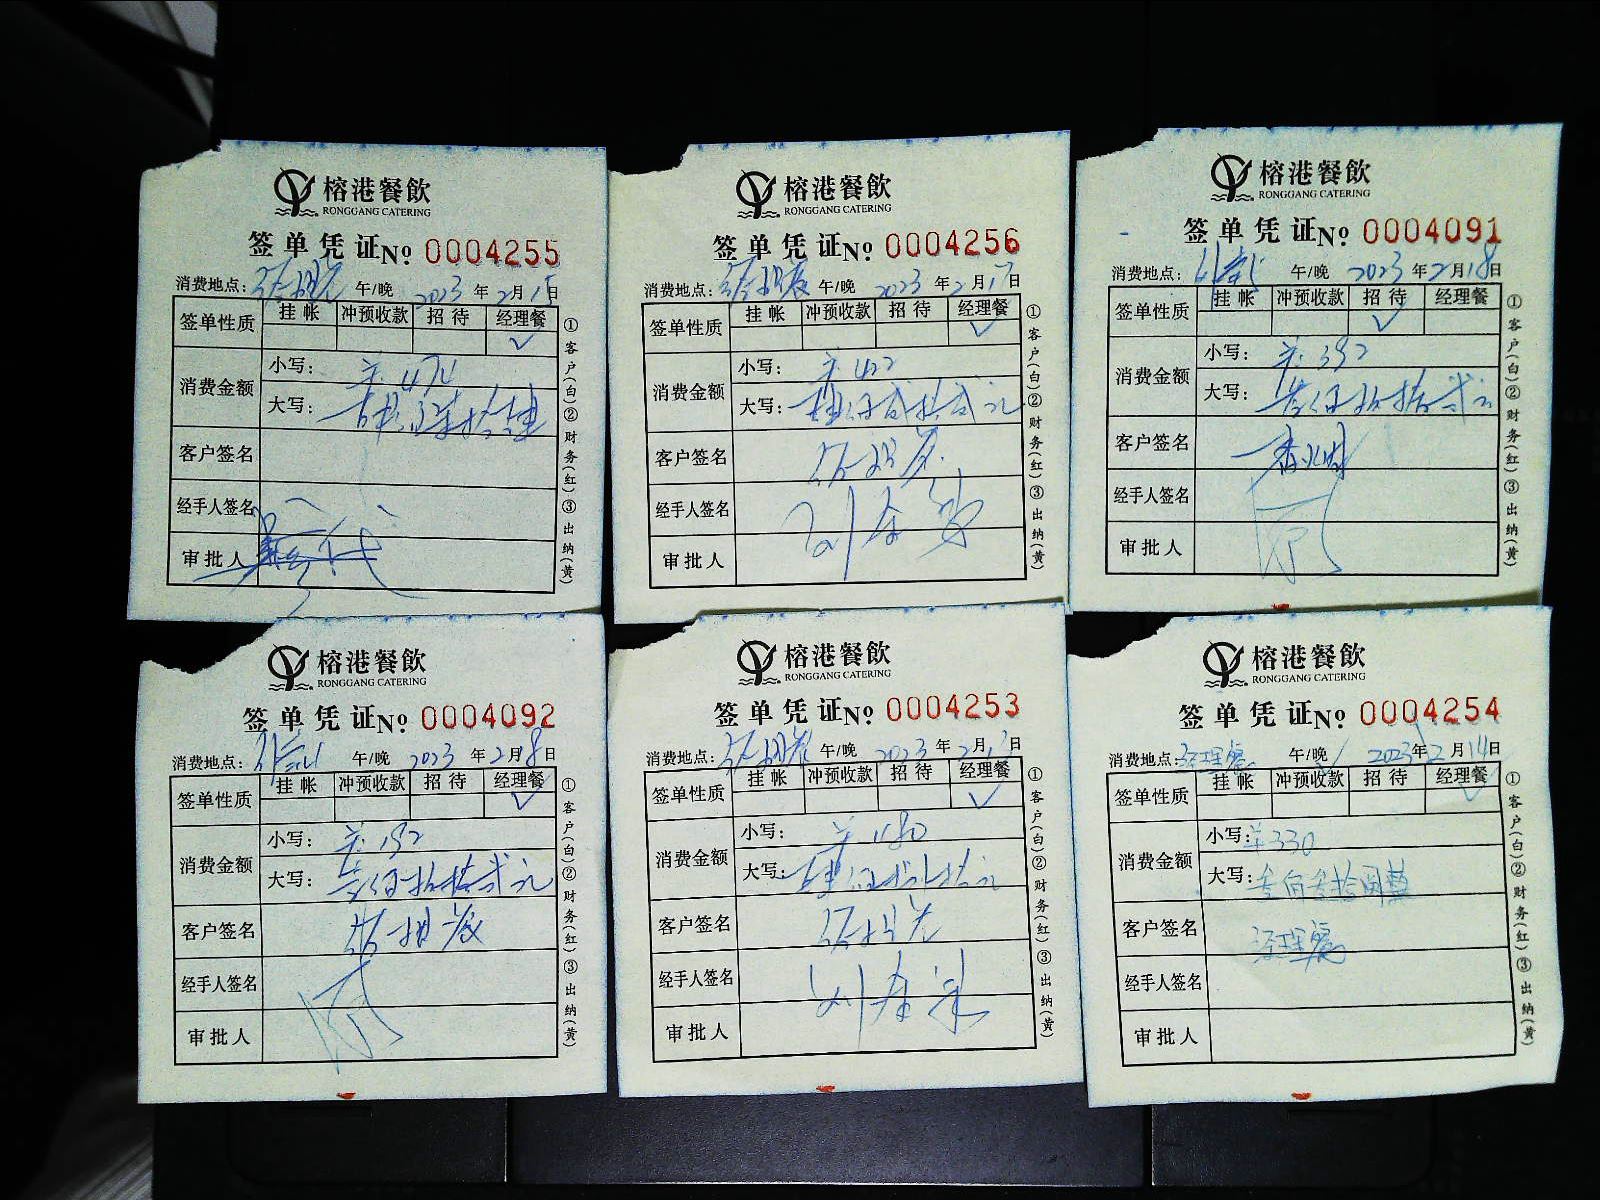 榕港餐飲
RONGGANG CATERING
签单凭证№ 0004255
消费地点： 午/晚 2023 年 2 月 15 日
签单性质 挂帐 冲预收款 招待 经理餐
✓
消费金额 小写：
大写：
客户签名
经手人签名
审批人
①客户(白)②财务(红)③出纳(黄)
榕港餐飲
RONGGANG CATERING
签单凭证№ 0004256
消费地点： 午/晚 2023 年 2 月 17 日
签单性质 挂帐 冲预收款 招待 经理餐
✓
消费金额 小写： 422
大写： 肆佰贰拾贰元
客户签名
经手人签名
审批人
①客户(白)②财务(红)③出纳(黄)
榕港餐飲
RONGGANG CATERING
签单凭证№ 0004091
消费地点： 午/晚 2023 年 2 月 18 日
签单性质 挂帐 冲预收款 招待 经理餐
✓
消费金额 小写： 392
大写： 叁佰玖拾贰元
客户签名
经手人签名
审批人
①客户(白)②财务(红)③出纳(黄)
榕港餐飲
RONGGANG CATERING
签单凭证№ 0004092
消费地点： 午/晚 2023 年 2 月 18 日
签单性质 挂帐 冲预收款 招待 经理餐
✓
消费金额 小写： 392
大写： 叁佰玖拾贰元
客户签名
经手人签名
审批人
①客户(白)②财务(红)③出纳(黄)
榕港餐飲
RONGGANG CATERING
签单凭证№ 0004253
消费地点： 午/晚 2023 年 2 月 日
签单性质 挂帐 冲预收款 招待 经理餐
✓
消费金额 小写： 480
大写： 肆佰捌拾元
客户签名
经手人签名
审批人
①客户(白)②财务(红)③出纳(黄)
榕港餐飲
RONGGANG CATERING
签单凭证№ 0004254
消费地点：经理餐 午/晚 2023 年 2 月 14 日
签单性质 挂帐 冲预收款 招待 经理餐
✓
消费金额 小写： 330
大写：叁佰叁拾圆整
客户签名 经理餐
经手人签名
审批人
①客户(白)②财务(红)③出纳(黄)